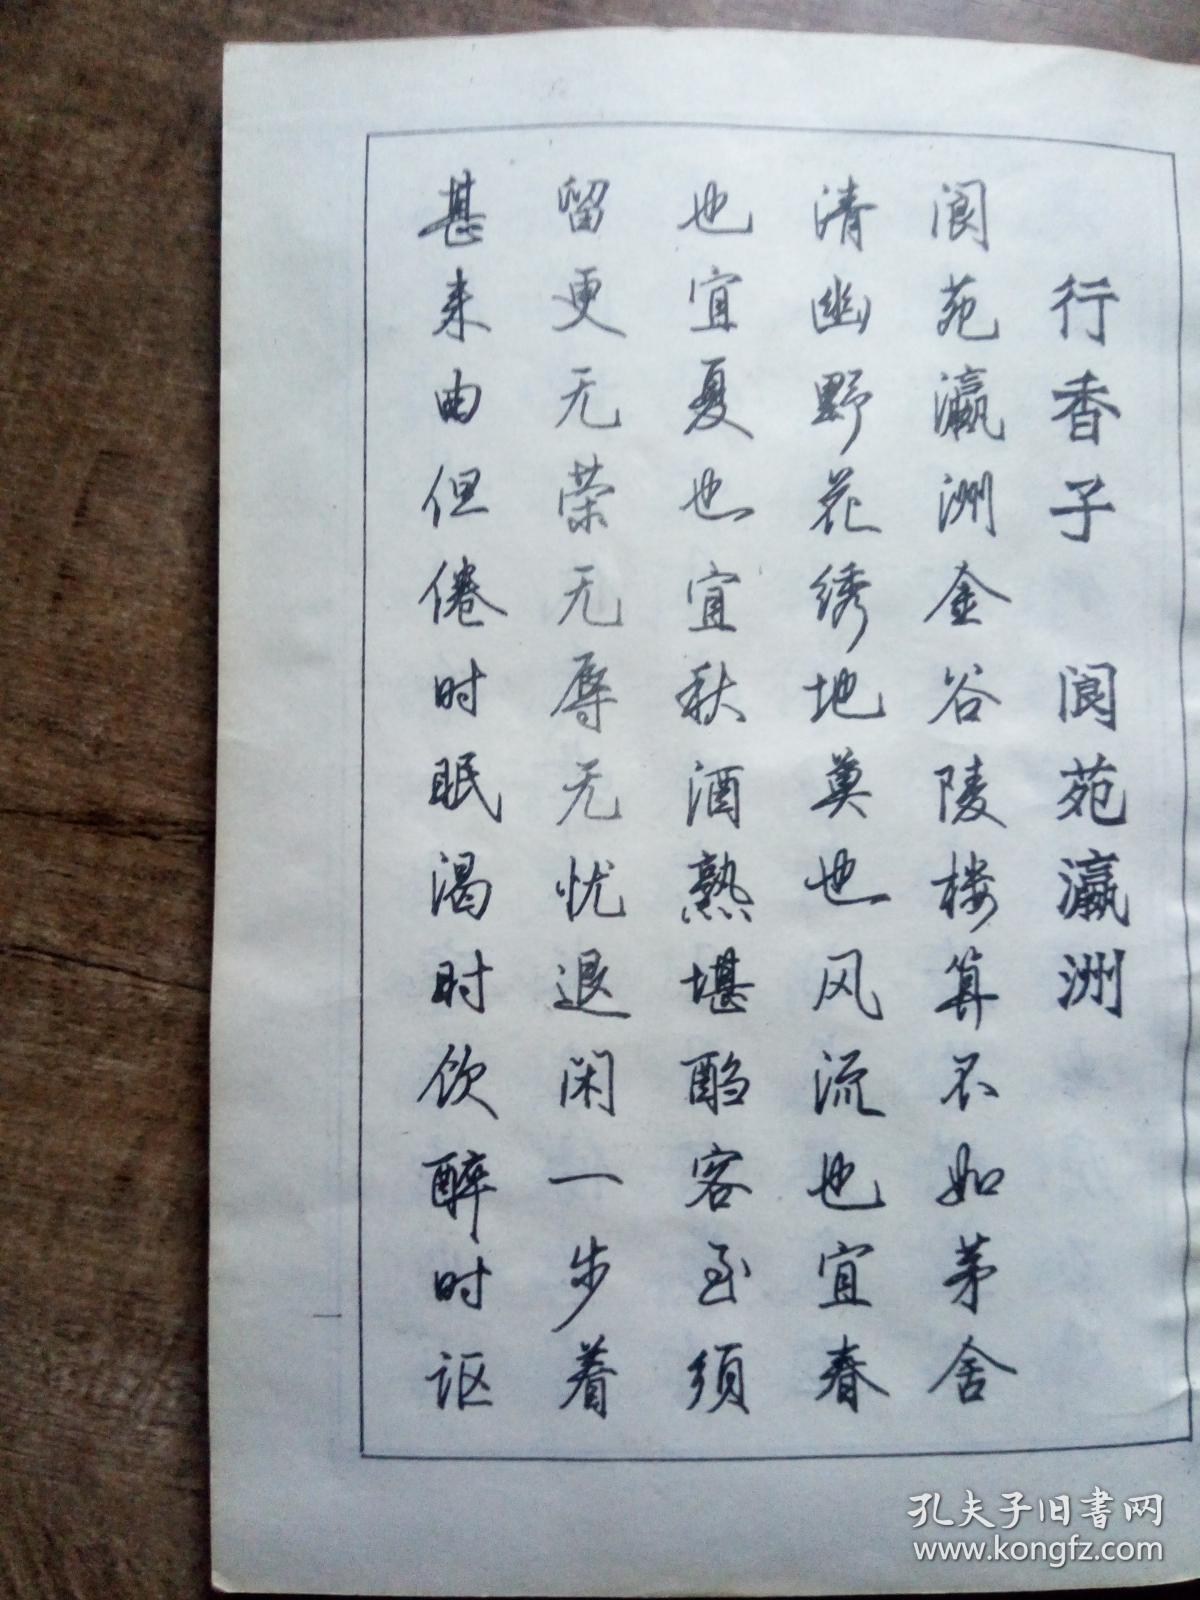 行香子 阆苑瀛洲
阆苑瀛洲金谷陵楼算不如茅舍
清幽野花绣地莫也风流也宜春
也宜夏也宜秋酒熟堪酌客至须
留更无荣无辱无忧退闲一步着
甚来由但倦时眠渴时饮醉时讴
孔夫子旧书网
www.kongfz.com